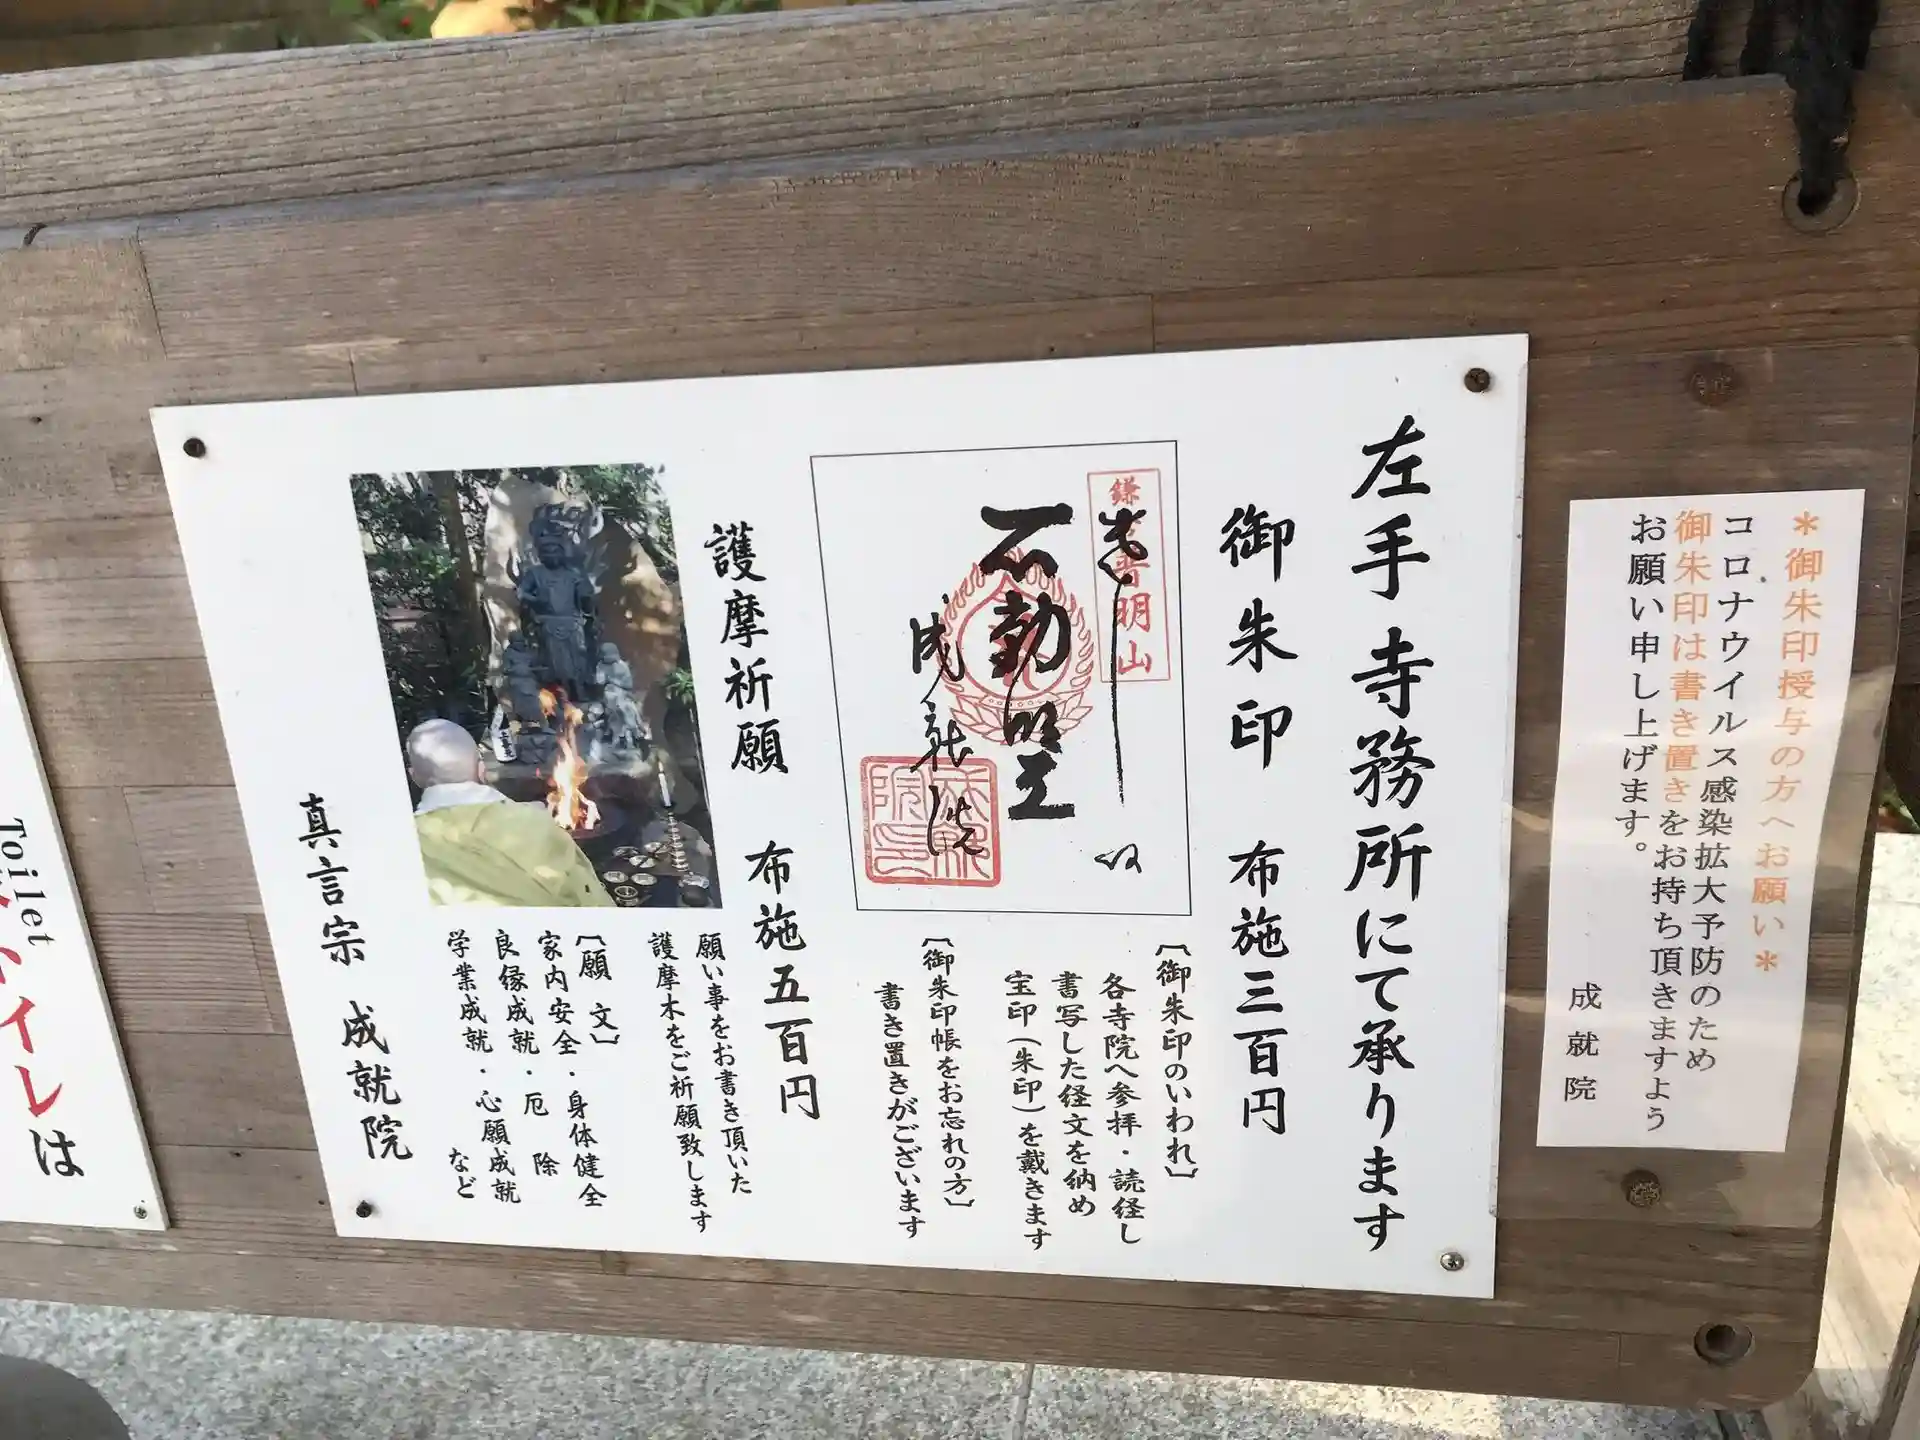 ＊御朱印授与の方へお願い＊
コロナウイルス感染拡大予防のため
御朱印は書き置きをお持ち頂きますよう
お願い申し上げます。
成就院
左手寺務所にて承ります
御朱印　布施三百円
〔御朱印のいわれ〕
各寺院へ参拝・読経し
書写した経文を納め
宝印（朱印）を戴きます
〔御朱印帳をお忘れの方〕
書き置きがございます
不動明王
成就院
護摩祈願　布施五百円
願い事をお書き頂いた
護摩木をご祈願致します
〔願　文〕
家内安全・身体健全
良縁成就・厄　除
学業成就・心願成就
など
真言宗　成就院
Toilet
トイレは